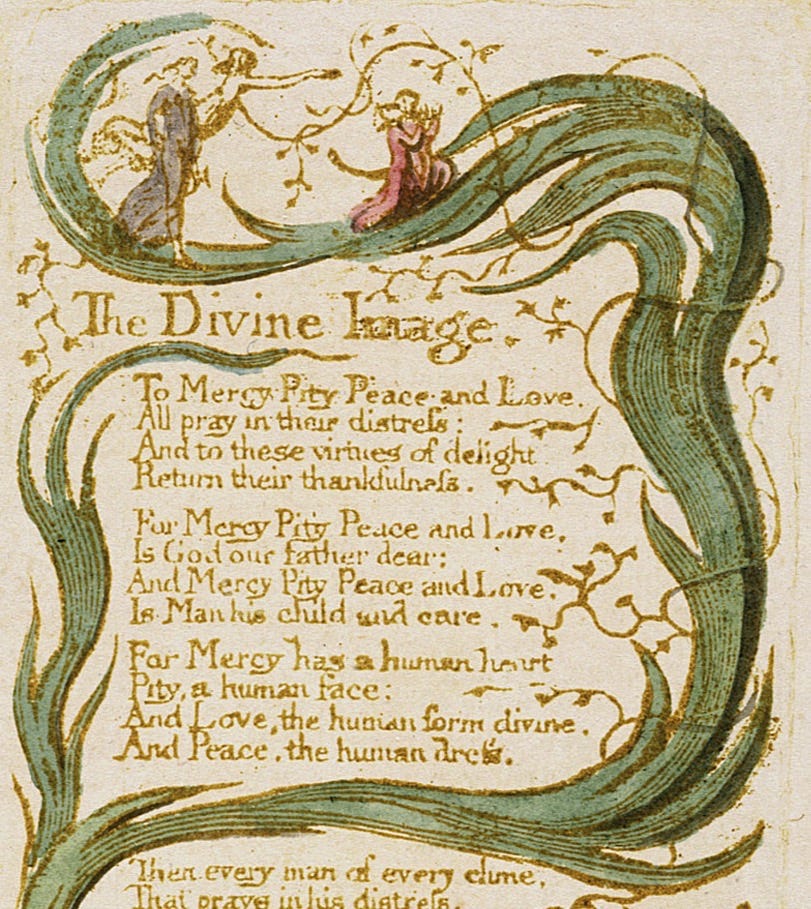 The Divine Image.
To Mercy Pity Peace and Love.
All pray in their distreſs:
And to these virtues of delight
Return their thankfulneſs.
For Mercy Pity Peace and Love,
Is God our father dear:
And Mercy Pity Peace and Love,
Is Man his child and care.
For Mercy has a human heart
Pity, a human face:
And Love, the human form divine.
And Peace, the human dreſs.
Then every man of every clime,
That prays in his distreſs.